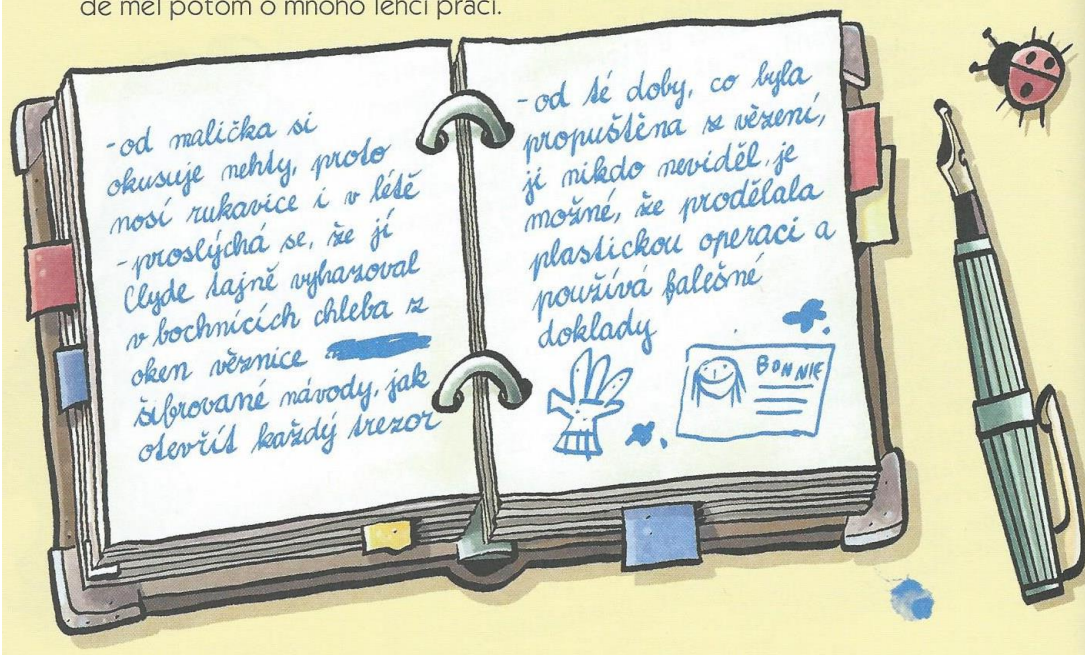 de měl potom o mnoho lehčí práci.
-od malička si
okusuje nehty, proto
nosí rukavice i v létě
-proslýchá se, že jí
Clyde tajně vyhazoval
v bochnících chleba z
oken věznice
šifrované návody, jak
otevřít každý trezor
-od té doby, co byla
propuštěna z vězení,
ji nikdo neviděl, je
možné, že prodělala
plastickou operaci a
používá falešné
doklady
BONNIE